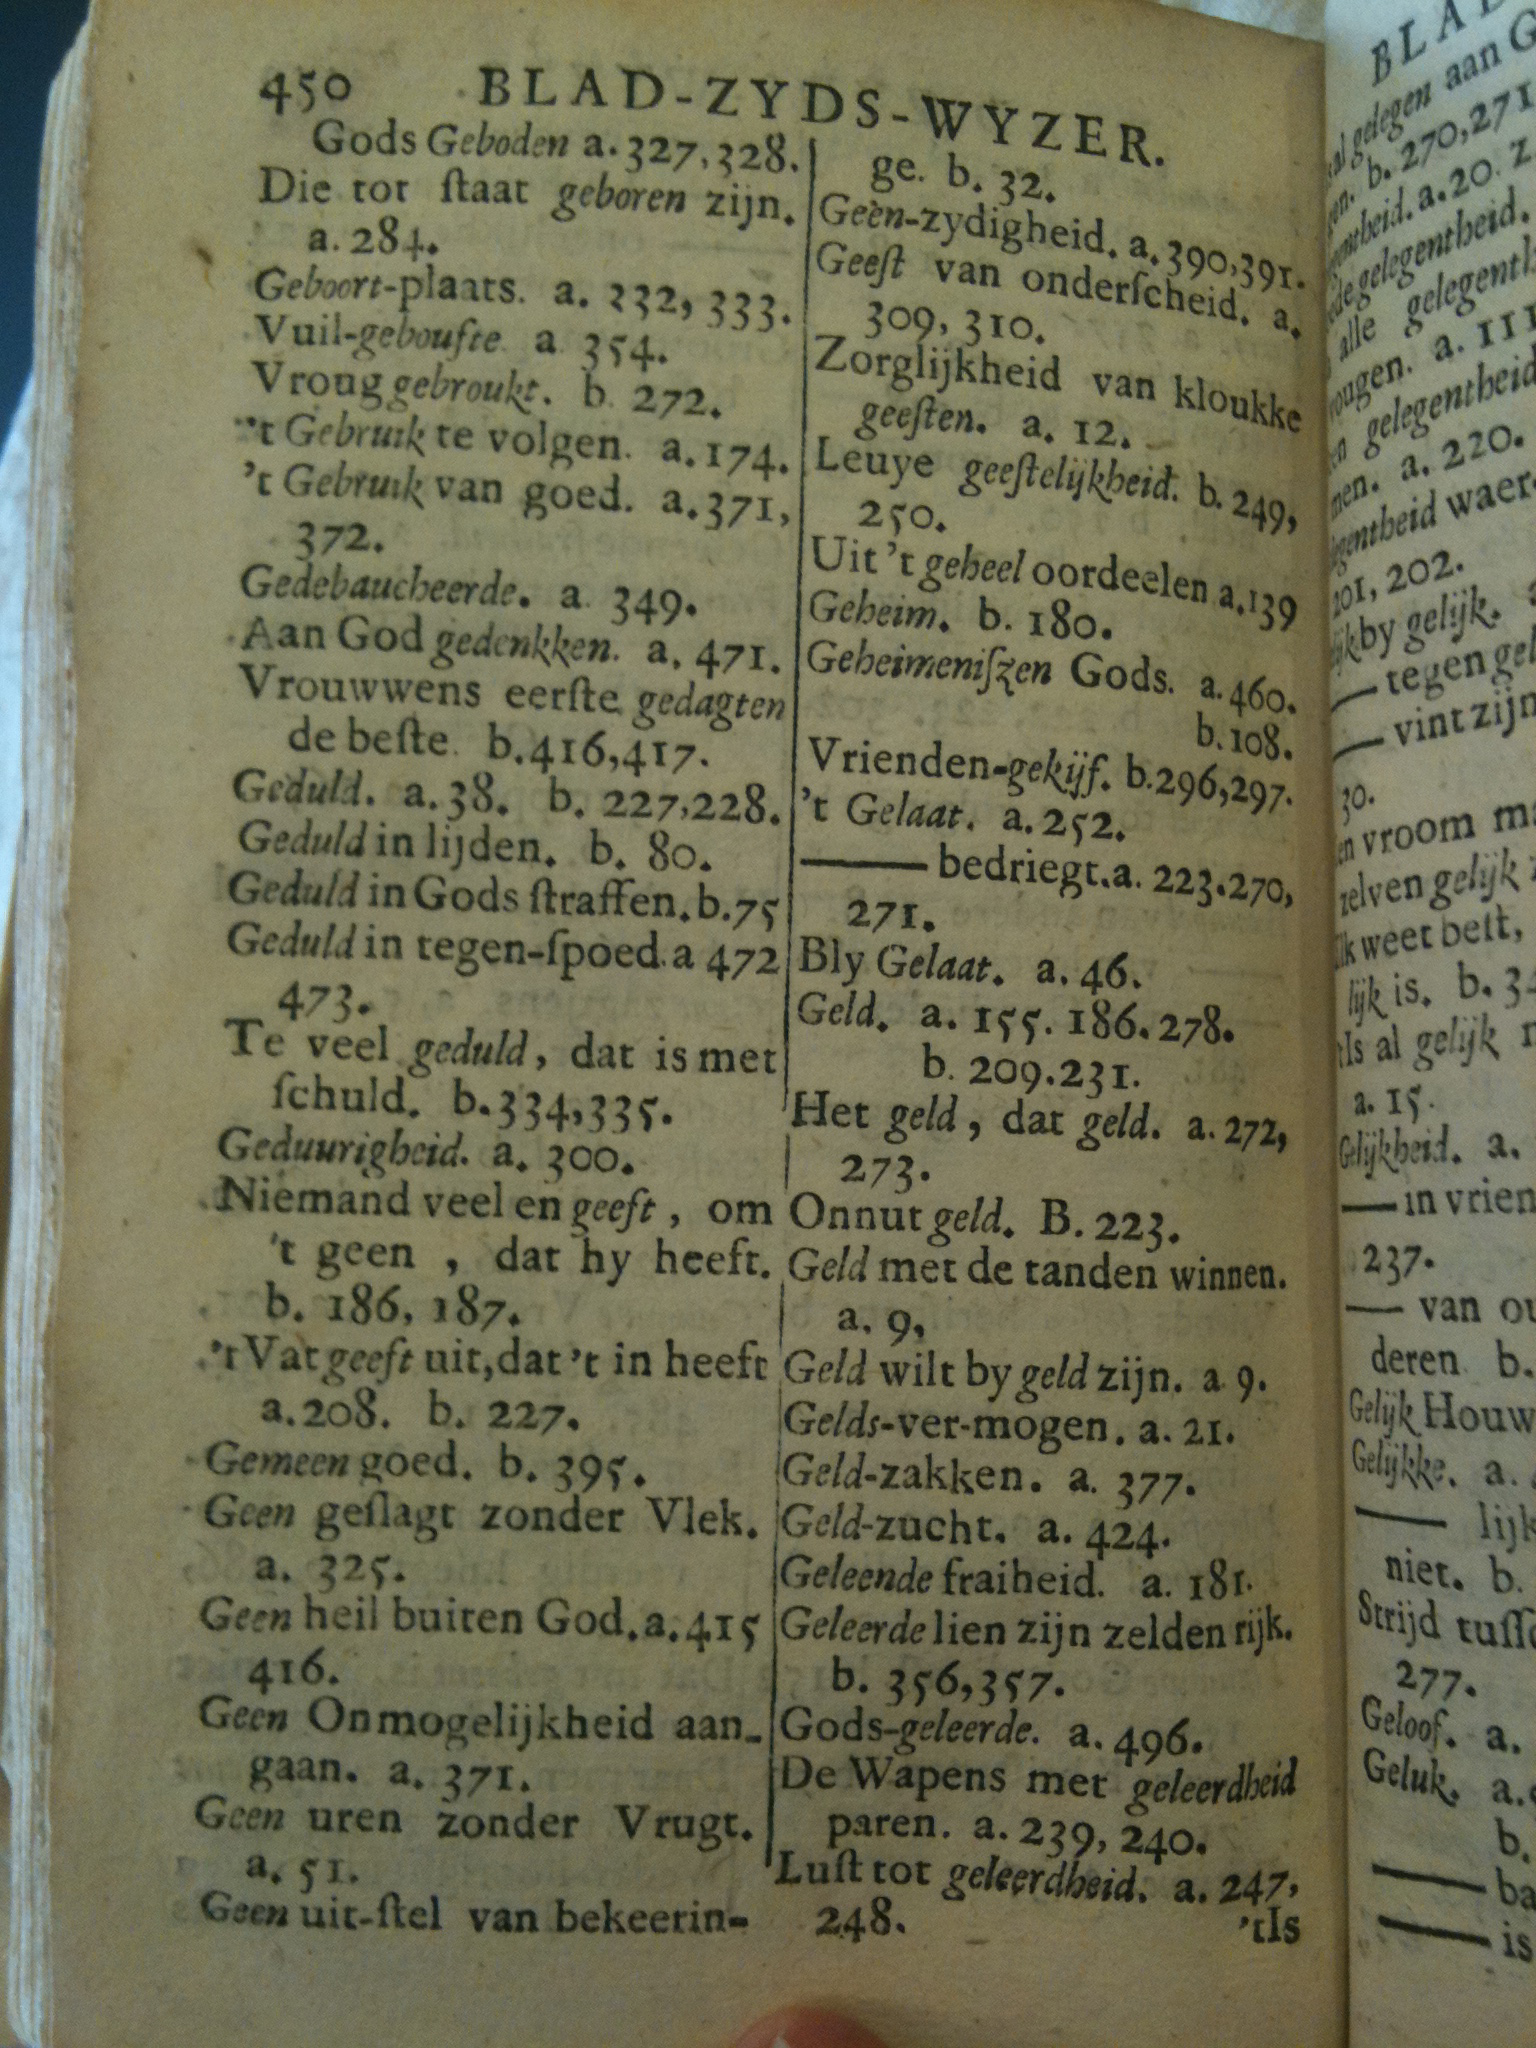 450 BLAD-ZYDS-WYZER.
Gods Geboden a. 327, 328.
Die tot ſtaat geboren zijn.
a. 284.
Geboort-plaats. a. 332, 333.
Vuil-gebouſte a 354.
Vroug gebroukt. b. 272.
't Gebruik te volgen. a. 174.
't Gebruik van goed. a. 371,
372.
Gedebaucheerde. a. 349.
Aan God gedenkken. a. 471.
Vrouwwens eerſte gedagten
de beſte. b. 416, 417.
Geduld. a. 38. b. 227, 228.
Geduld in lijden. b. 80.
Geduld in Gods ſtraffen. b. 75
Geduld in tegen-ſpoed. a 472
473.
Te veel geduld, dat is met
ſchuld. b. 334, 335.
Geduurigheid. a. 300.
Niemand veel en geeft, om
't geen, dat hy heeft.
b. 186, 187.
't Vat geeft uit, dat 't in heeft
a. 208. b. 227.
Gemeen goed. b. 395.
Geen geſlagt zonder Vlek.
a. 325.
Geen heil buiten God. a. 415
416.
Geen Onmogelijkheid aan-
gaan. a. 371.
Geen uren zonder Vrugt.
a. 51.
Geen uit-ſtel van bekeerin-
ge. b. 32.
Geen-zydigheid. a. 390, 391.
Geeſt van onderſcheid. a.
309, 310.
Zorglijkheid van kloukke
geeſten. a. 12.
Leuye geeſtelijkheid. b. 249,
250.
Uit 't geheel oordeelen a. 139
Geheim. b. 180.
Geheimeniſzen Gods. a. 460.
b. 108.
Vrienden-gekijf. b. 296, 297.
't Gelaat. a. 252.
—— bedriegt. a. 223. 270,
271.
Bly Gelaat. a. 46.
Geld. a. 155. 186. 278.
b. 209. 231.
Het geld, dat geld. a. 272,
273.
Onnut geld. B. 223.
Geld met de tanden winnen.
a. 9,
Geld wilt by geld zijn. a 9.
Gelds-ver-mogen. a. 21.
Geld-zakken. a. 377.
Geld-zucht. a. 424.
Geleende fraiheid. a. 181.
Geleerde lien zijn zelden rijk.
b. 356, 357.
Gods-geleerde. a. 496.
De Wapens met geleerdheid
paren. a. 239, 240.
Luſt tot geleerdheid. a. 247,
248.
'tIs
gelegen aan
b. 270, 271
a. 20.
gelegentheid.
alle
a. 111
gelegentheid
a. 220.
waer-
201, 202.
by gelijk.
—— tegen
—— vint zijn
30.
vroom
zelven gelijk
weet beſt,
lijk is. b.
Is al gelijk
a. 15.
Gelijkheid. a.
—— in vrien
237.
—— van
deren b.
Gelijk Houw
Gelijkke. a.
—— lijk
niet. b.
Strijd tuſſ
277.
Geloof. a.
Geluk. a.
b.
—— ba
—— is